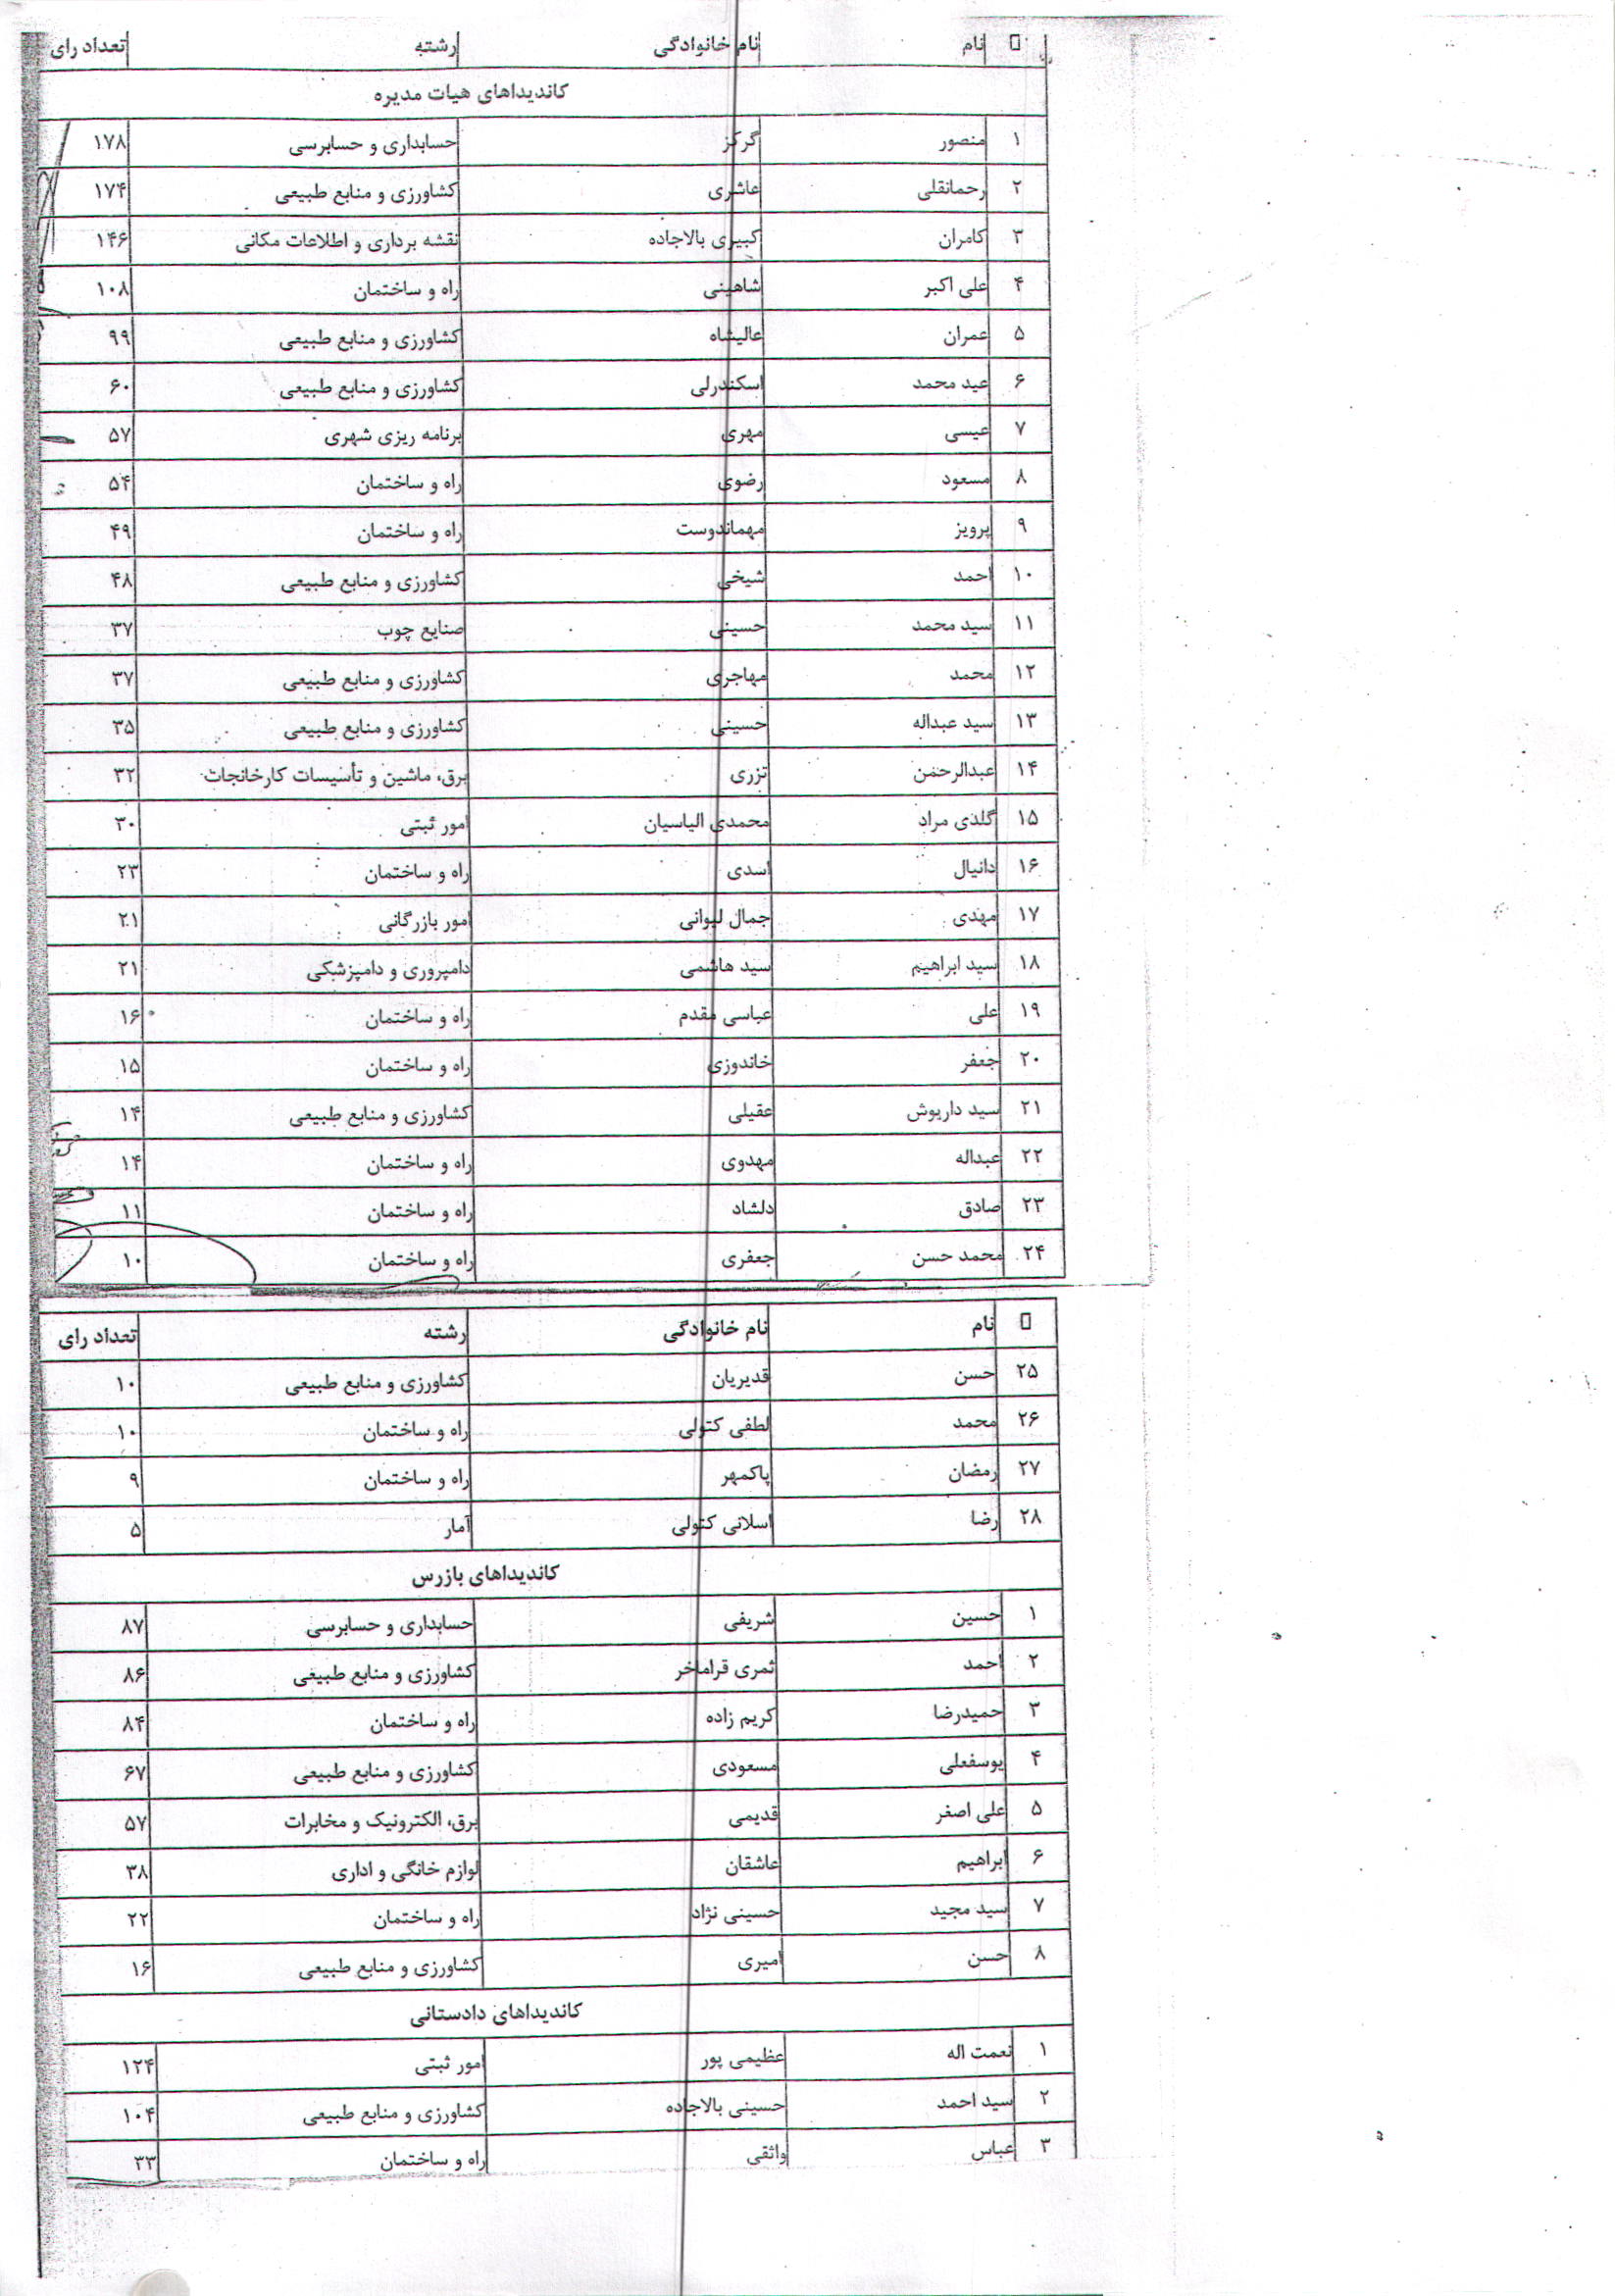 نام نام خانوادگی رشته تعداد رای
کاندیداهای هیات مدیره
۱ منصور گرکز حسابداری و حسابرسی ۱۷۸
۲ رحمانقلی عاشری کشاورزی و منابع طبیعی ۱۷۴
۳ کامران کبیری بالاجاده نقشه برداری و اطلاعات مکانی ۱۴۶
۴ علی اکبر شاهینی راه و ساختمان ۱۰۸
۵ عمران عالیشاه کشاورزی و منابع طبیعی ۹۹
۶ عید محمد اسکندرلی کشاورزی و منابع طبیعی ۶۰
۷ عیسی مهری برنامه ریزی شهری ۵۷
۸ مسعود رضوی راه و ساختمان ۵۴
۹ پرویز مهماندوست راه و ساختمان ۴۹
۱۰ احمد شیخی کشاورزی و منابع طبیعی ۴۸
۱۱ سید محمد حسینی صنایع چوب ۳۷
۱۲ محمد مهاجری کشاورزی و منابع طبیعی ۳۷
۱۳ سید عبداله حسینی کشاورزی و منابع طبیعی ۳۵
۱۴ عبدالرحمن تزری برق، ماشین و تأسیسات کارخانجات ۳۲
۱۵ گلدی مراد محمدی الیاسیان امور ثبتی ۳۰
۱۶ دانیال اسدی راه و ساختمان ۲۳
۱۷ مهدی جمال لیوانی امور بازرگانی ۲۱
۱۸ سید ابراهیم سید هاشمی دامپروری و دامپزشکی ۲۱
۱۹ علی عباسی مقدم راه و ساختمان ۱۶
۲۰ جعفر خاندوزی راه و ساختمان ۱۵
۲۱ سید داریوش عقیلی کشاورزی و منابع طبیعی ۱۴
۲۲ عبداله مهدوی راه و ساختمان ۱۴
۲۳ صادق دلشاد راه و ساختمان ۱۱
۲۴ محمد حسن جعفری راه و ساختمان ۱۰
نام نام خانوادگی رشته تعداد رای
۲۵ حسن قدیریان کشاورزی و منابع طبیعی ۱۰
۲۶ محمد لطفی کتولی راه و ساختمان ۱۰
۲۷ رمضان پاکمهر راه و ساختمان ۹
۲۸ رضا اسلانی کتولی آمار ۵
کاندیداهای بازرس
۱ حسین شریفی حسابداری و حسابرسی ۸۷
۲ احمد ثمری قراماخر کشاورزی و منابع طبیعی ۸۶
۳ حمیدرضا کریم زاده راه و ساختمان ۸۴
۴ یوسفعلی مسعودی کشاورزی و منابع طبیعی ۶۷
۵ علی اصغر قدیمی برق، الکترونیک و مخابرات ۵۷
۶ ابراهیم عاشقان لوازم خانگی و اداری ۳۸
۷ سید مجید حسینی نژاد راه و ساختمان ۲۲
۸ حسن امیری کشاورزی و منابع طبیعی ۱۶
کاندیداهای دادستانی
۱ نعمت اله عظیمی پور امور ثبتی ۱۲۴
۲ سید احمد حسینی بالاجاده کشاورزی و منابع طبیعی ۱۰۴
۳ عباس واثقی راه و ساختمان ۳۳